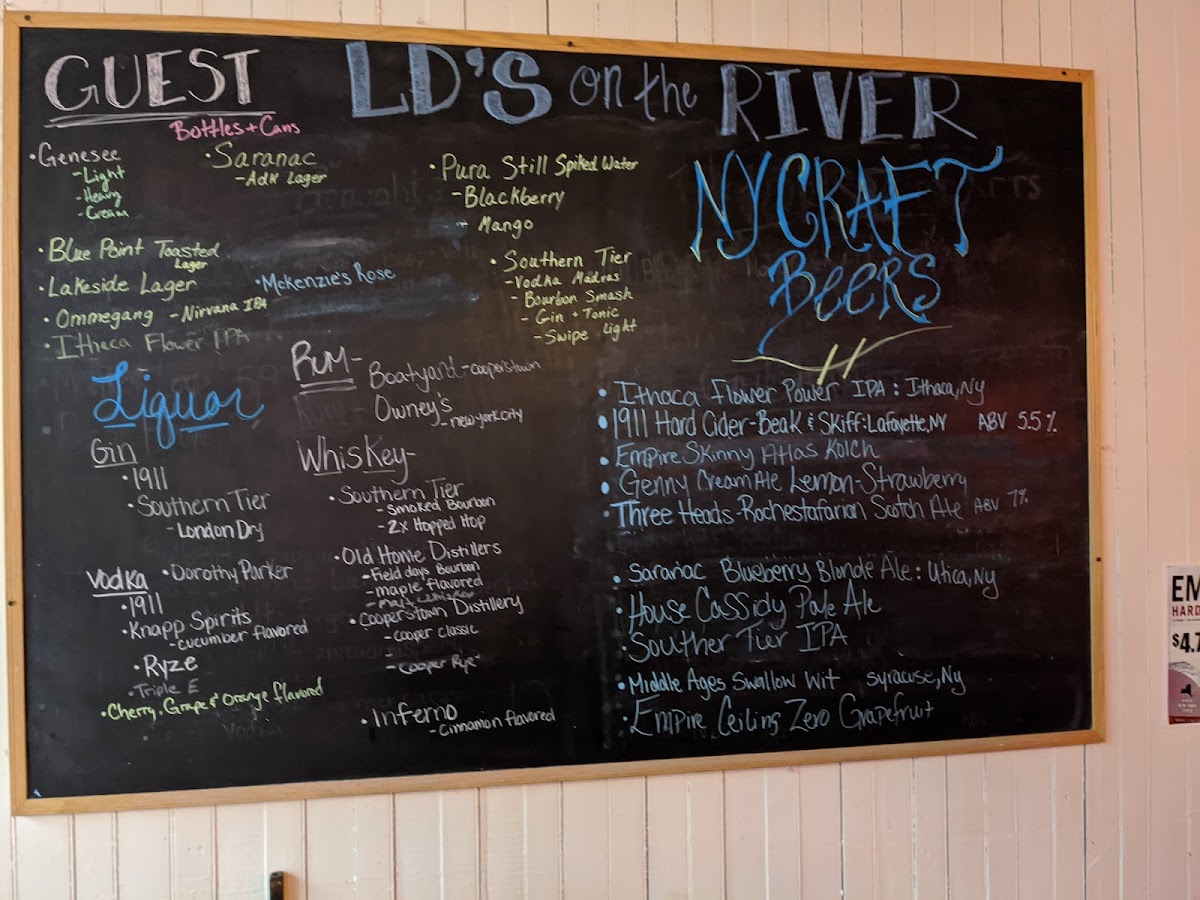 GUEST
LD'S on the RIVER
Bottles + Cans
• Genesee
- Light
- Heavy
- Cream
• Saranac
- Adk Lager
• Pura Still Spiked Water
- Blackberry
- Mango
• Blue Point Toasted
Lager
• Lakeside Lager
• Mckenzie's Rose
• Ommegang - Nirvana IPA
• Ithaca Flower IPA
• Southern Tier
- Vodka Madras
- Bourbon Smash
- Gin + Tonic
- Swipe Light
Liquor
Gin
• 1911
• Southern Tier
- London Dry
• Dorothy Parker
Vodka
• 1911
• Knapp Spirits
- cucumber flavored
• Ryze
• Triple E
• Cherry, Grape & Orange flavored
Rum -
Boatyard - cooperstown
Owney's
- new york city
Whiskey -
• Southern Tier
- Smoked Bourbon
- 2x Hopped Hop
• Old Home Distillers
- Field days Bourbon
- maple flavored
• Cooperstown Distillery
- cooper classic
- Cooper Rye
• Inferno
- Cinnamon flavored
NY CRAFT
BEERS
• Ithaca Flower Power IPA : Ithaca, Ny
• 1911 Hard Cider - Beak & Skiff : Lafayette, NY ABV 5.5%
• Empire Skinny Atlas Kolch
• Genny Cream Ale Lemon-Strawberry
• Three Heads - Rochestafarian Scotch Ale ABV 7%
• Saranac Blueberry Blonde Ale : Utica, Ny
• House Cassidy Pale Ale
• Souther Tier IPA
• Middle Ages Swallow Wit Syracuse, Ny
• Empire Ceiling Zero Grapefruit
EM
HARD
$4.7